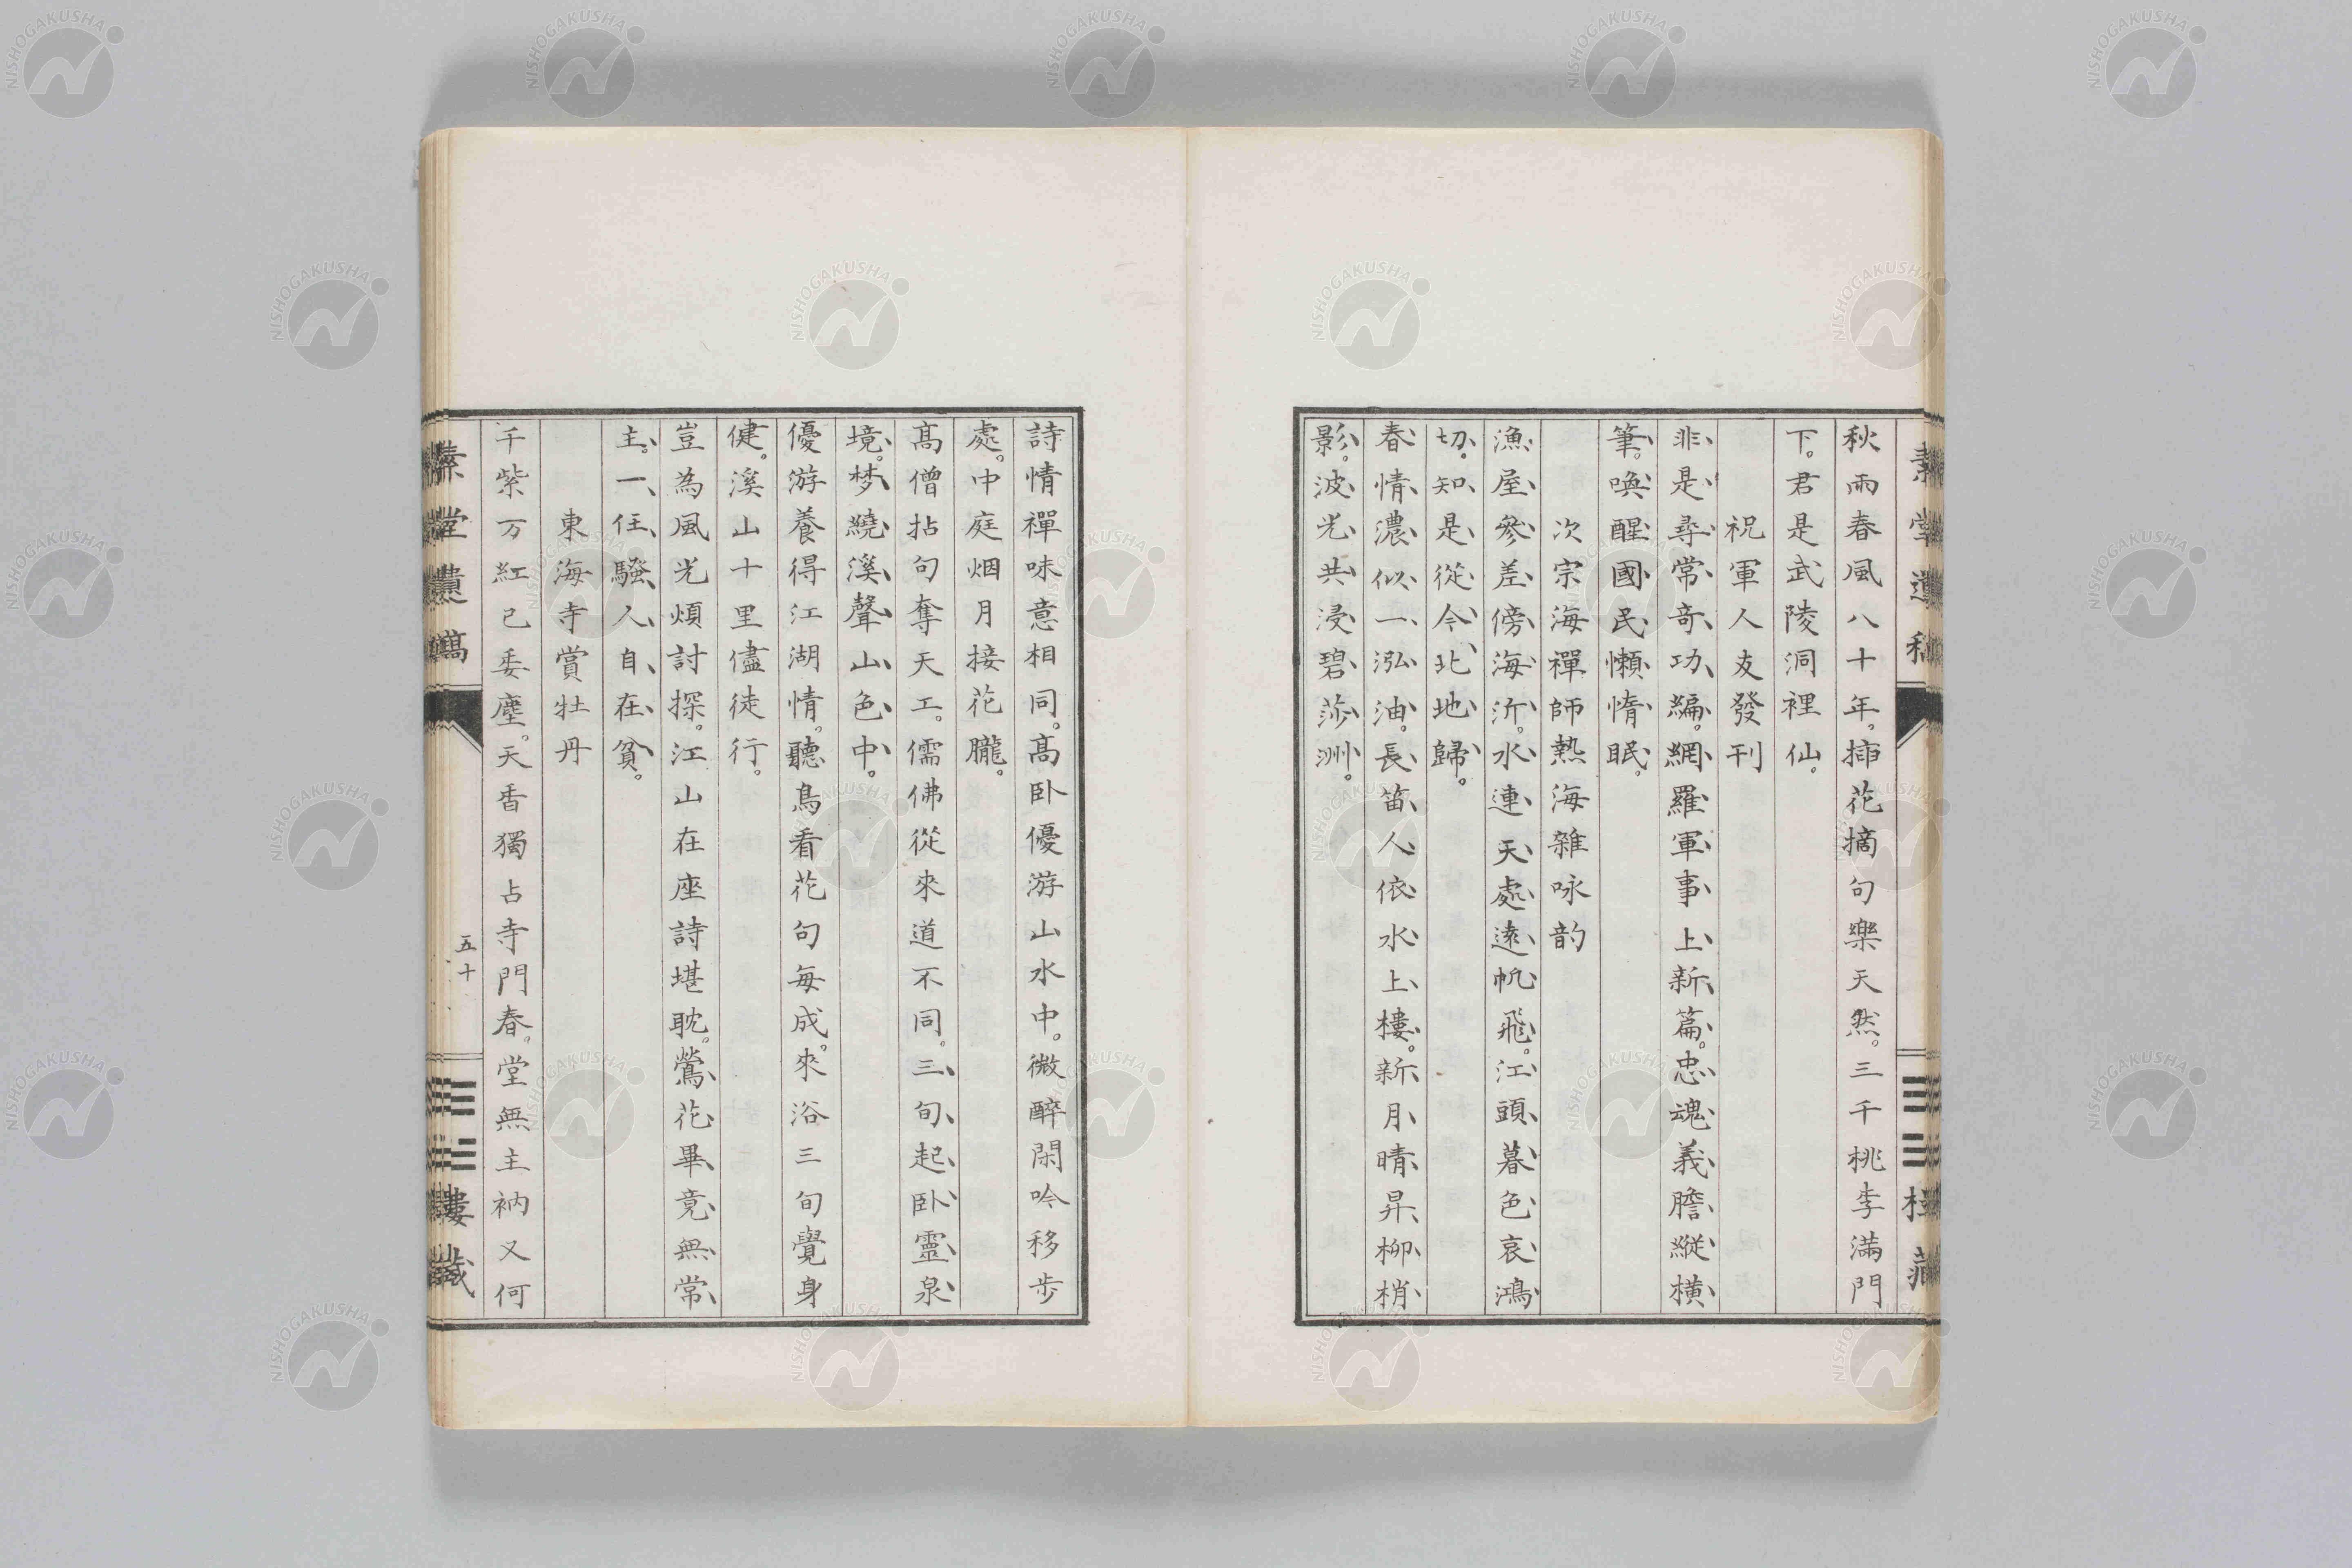 秋雨春風八十年。揷花摘句樂天然。三千桃李滿門
下。君是武陵洞裡仙。
祝軍人友發刊
非是尋常奇功編。網羅軍事上新篇。忠魂義膽縱橫
筆。喚醒國民懶惰眠。
次宗海禪師熱海雜咏韵
漁屋參差傍海沂。水連天處遠帆飛。江頭暮色哀鴻
切。知是從今北地歸。
春情濃似一泓油。長笛人依水上樓。新月晴昇柳梢
影。波光共浸碧莎洲。
詩情禪味意相同。髙臥優游山水中。微醉閑吟移步
處。中庭烟月接花朧。
髙僧拈句奪天工。儒佛從來道不同。三旬起臥靈泉
境。梦繞溪聲山色中。
優游養得江湖情。聽鳥看花句每成。來浴三旬覺身
健。溪山十里儘徒行。
豈為風光煩討探。江山在座詩堪耽。鶯花畢竟無常
主。一任騷人自在貧。
東海寺賞牡丹
千紫万紅已委塵。天香獨占寺門春。堂無主衲又何
素堂遺稿
五十
樓藏
NISHOGAKUSHA